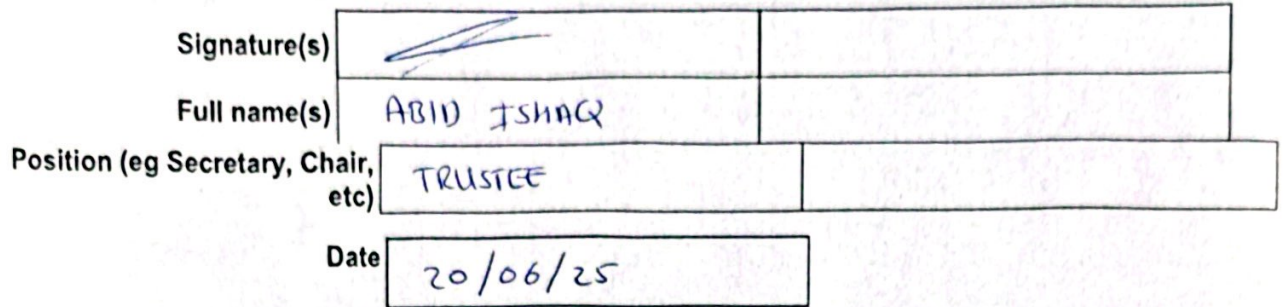 Signature(s)
Full name(s) ABID ISHAQ
Position (eg Secretary, Chair, etc) TRUSTEE
Date 20/06/25